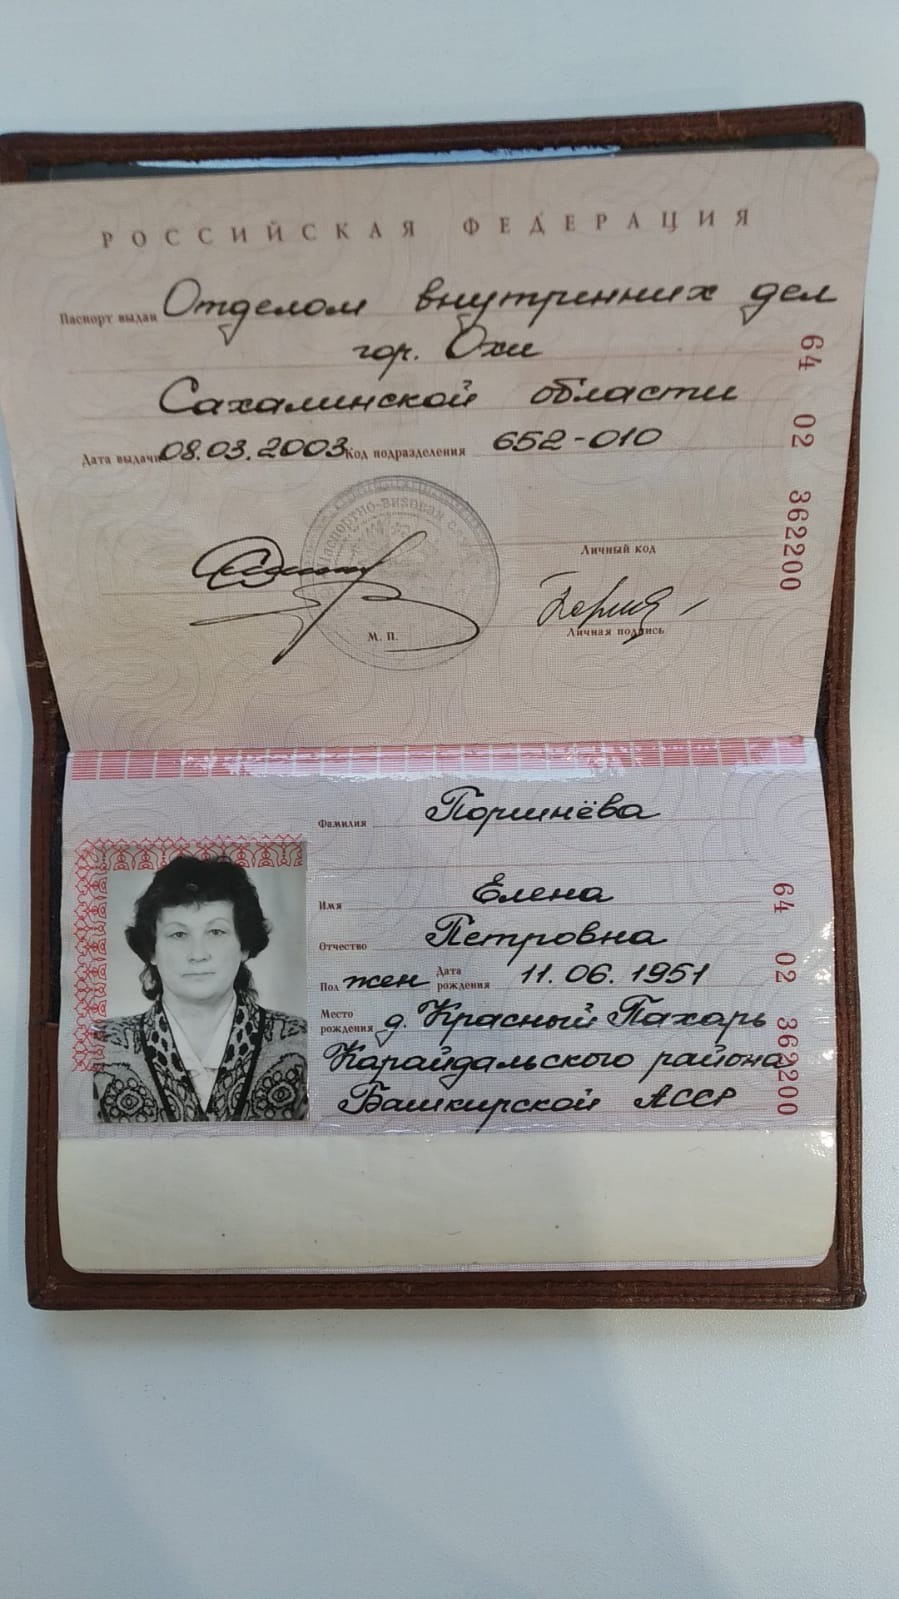 РОССИЙСКАЯ ФЕДЕРАЦИЯ
Паспорт выдан Отделом внутренних дел
гор. Охи
Сахалинской области
Дата выдачи 08.03.2003 Код подразделения 652-010
64 02 362200
Паспортно-визовая
Личный код
М. П.
Личная подпись
Фамилия Поршнёва
Имя Елена
Отчество Петровна
Пол жен Дата рождения 11.06.1951
Место рождения д. Красный Пахарь
Карайдальского района
Башкирской АССР
64 02 362200